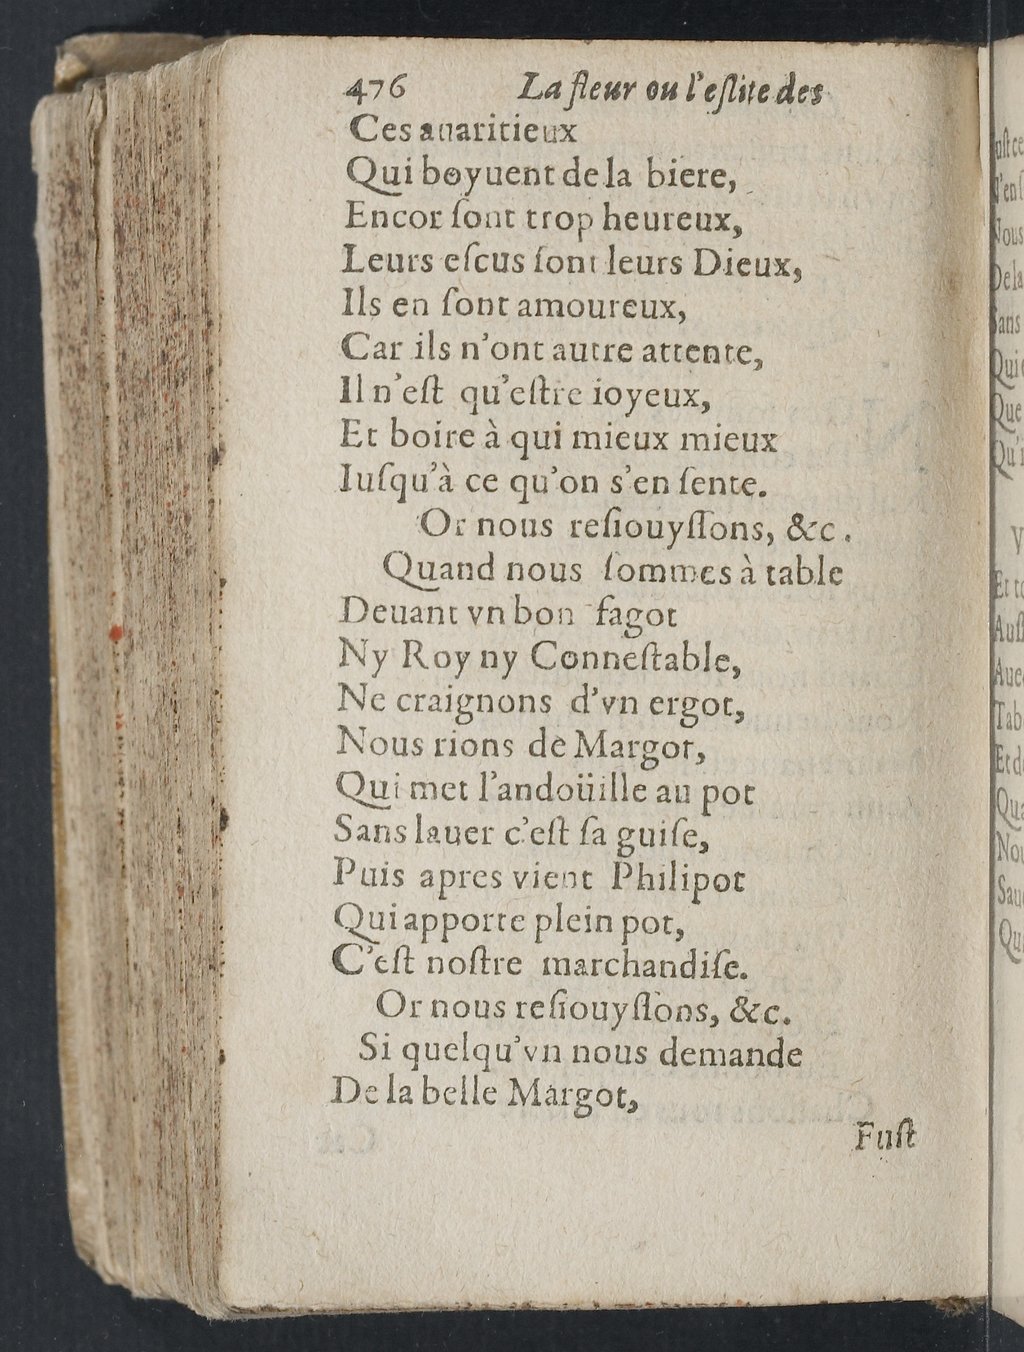 476 La fleur ou l'eſlite des
Ces auaritieux
Qui boyuent de la biere,
Encor ſont trop heureux,
Leurs eſcus ſont leurs Dieux,
Ils en ſont amoureux,
Car ils n'ont autre attente,
Il n'eſt qu'eſtre ioyeux,
Et boire à qui mieux mieux
Iuſqu'à ce qu'on s'en ſente.
Or nous reſiouyſſons, &c.
Quand nous ſommes à table
Deuant vn bon fagot
Ny Roy ny Conneſtable,
Ne craignons d'vn ergot,
Nous rions de Margot,
Qui met l'andoüille au pot
Sans lauer c'eſt ſa guiſe,
Puis apres vient Philipot
Qui apporte plein pot,
C'eſt noſtre marchandiſe.
Or nous reſiouyſſons, &c.
Si quelqu'vn nous demande
De la belle Margot,
Fuſt